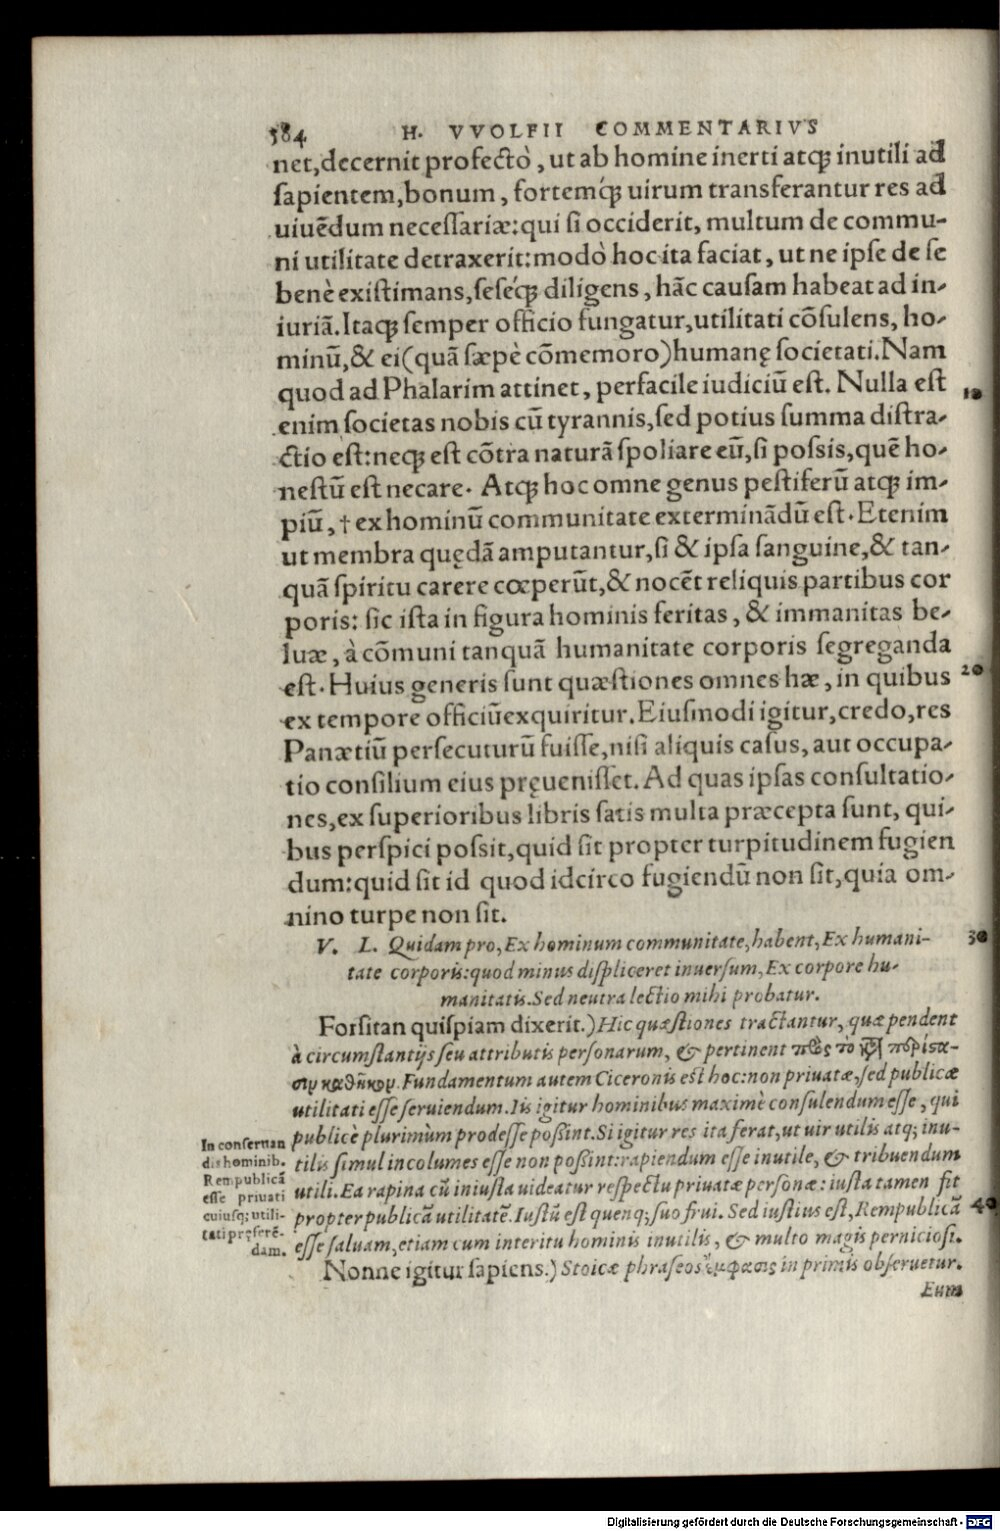 384 H. VVOLFII COMMENTARIVS
net, decernit profectò, ut ab homine inerti atq; inutili ad
sapientem, bonum, fortemq́; uirum transferantur res ad
uiuẽdum necessariæ: qui si occiderit, multum de commu-
ni utilitate detraxerit: modò hoc ita faciat, ut ne ipse de se
benè existimans, seseq́; diligens, hãc causam habeat ad in-
iuriã. Itaq; semper officio fungatur, utilitati cõsulens, ho-
minũ, & ei (quã sæpè cõmemoro) humanę societati. Nam
quod ad Phalarim attinet, perfacile iudiciũ est. Nulla est 10
enim societas nobis cũ tyrannis, sed potius summa distra-
ctio est: neq; est cõtra naturã spoliare eũ, si possis, quẽ ho-
nestũ est necare. Atq; hoc omne genus pestiferũ atq; im-
piũ, † ex hominũ communitate exterminãdũ est. Etenim
ut membra quędã amputantur, si & ipsa sanguine, & tan-
quã spiritu carere cœperũt, & nocẽt reliquis partibus cor
poris: sic ista in figura hominis feritas, & immanitas be-
luæ, à cõmuni tanquã humanitate corporis segreganda
est. Huius generis sunt quæstiones omnes hæ, in quibus 20
ex tempore officiũ exquiritur. Eiusmodi igitur, credo, res
Panætiũ persecuturũ fuisse, nisi aliquis casus, aut occupa-
tio consilium eius pręuenisset. Ad quas ipsas consultatio-
nes, ex superioribus libris satis multa præcepta sunt, qui-
bus perspici possit, quid sit propter turpitudinem fugien
dum: quid sit id quod idcirco fugiendũ non sit, quia om-
nino turpe non sit.
V. L. Quidam pro, Ex hominum communitate, habent, Ex humani- 30
tate corporis: quod minus displiceret inuersum, Ex corpore hu-
manitatis. Sed neutra lectio mihi probatur.
Forsitan quispiam dixerit.) Hic quæstiones tractantur, quæ pendent
à circumstantijs seu attributis personarum, & pertinent πρὸς τὸ κατὰ περίστα-
σιν καθῆκον. Fundamentum autem Ciceronis est hoc: non priuatæ, sed publicæ
utilitati esse seruiendum. Iis igitur hominibus maximè consulendum esse, qui
publicè plurimùm prodesse possint. Si igitur res ita ferat, ut uir utilis atq; inu-
tilis simul incolumes esse non possint: rapiendum esse inutile, & tribuendum
utili. Ea rapina cũ iniusta uideatur respectu priuatæ personæ: iusta tamen fit
propter publicã utilitatẽ. Iustũ est quenq; suo frui. Sed iustius est, Rempublicã 40
esse saluam, etiam cum interitu hominis inutilis, & multo magis perniciosi.
In conseruan
dis hominib.
Rempublicã
esse priuati
cuiusq; utili-
tati pręferẽ-
dam.
Nonne igitur sapiens.) Stoicæ phraseos ἔμφασις in primis obseruetur.
Eum
Digitalisierung gefördert durch die Deutsche Forschungsgemeinschaft - DFG